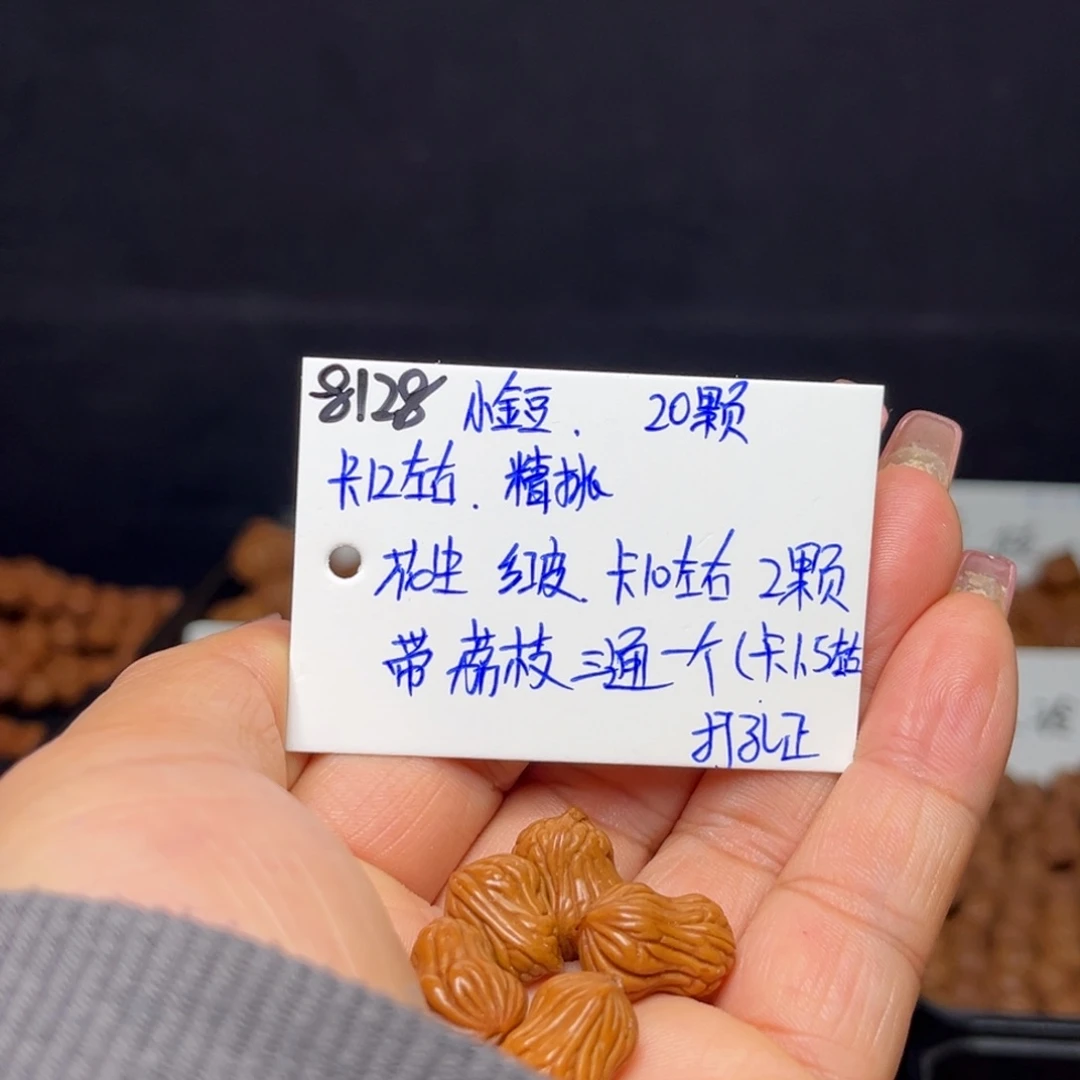 8128 小金豆. 20颗
卡12左右. 精挑
花生 红皮. 卡10左右 2颗
带荔枝三通一个(卡1.5左右
打孔正